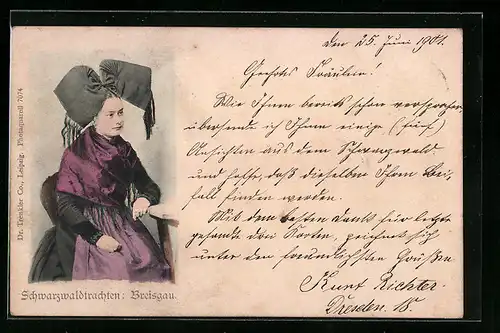 den 25. Juni 1901.
Geehrtes Fräulein!
Wie Ihnen bereits schon versprochen,
übersende ich Ihnen einige (fünf)
Ansichten aus dem Schwarzwald
und hoffe, daß dieselben Ihren Bei-
fall finden werden.
Mit dem besten Dank für letzt
gesandte drei Karten, zeichnet sich
unter den freundlichsten Grüßen
Kurt Richter.
Dresden. 18.
Dr. Trenkler Co., Leipzig. Photaquarell 7074
Schwarzwaldtrachten: Breisgau.